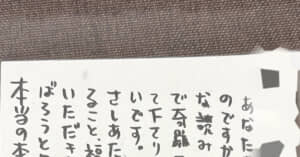 あなた
のですか
な読み
で奇
て下てり
いです。
さしあた
ること、
いただき
ばろうと
本当の本